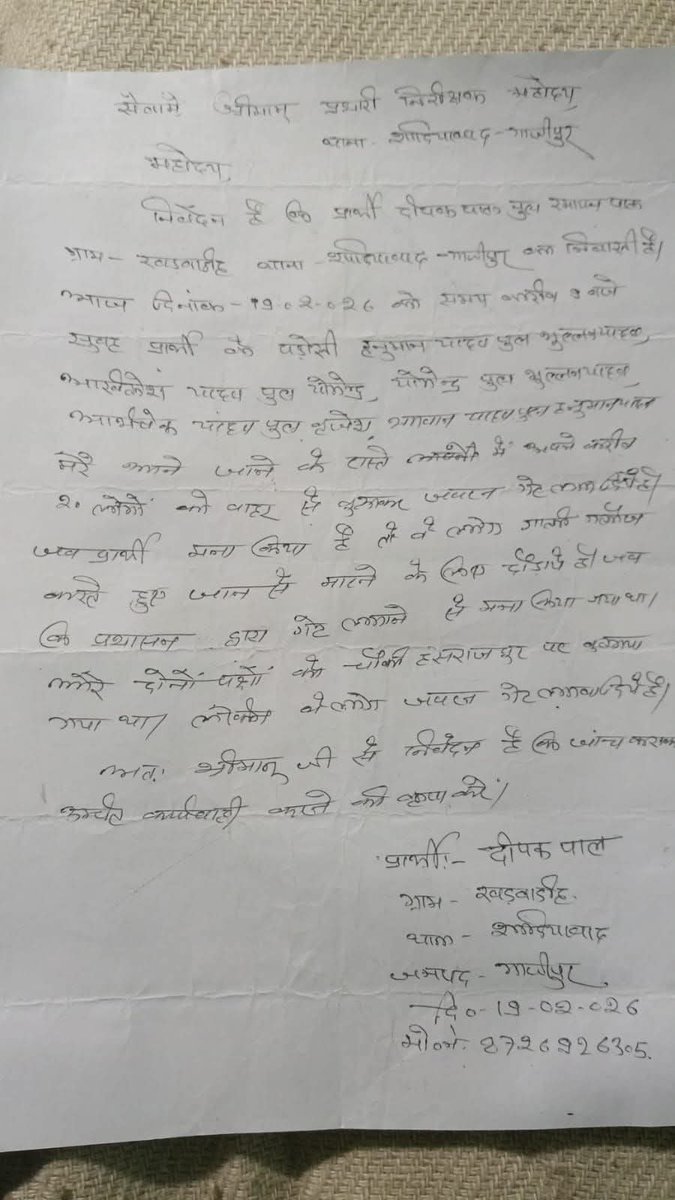 सेवामे श्रीमान् प्रभारी निरीक्षक महोदय
थाना शादियाबाद - गाजीपुर
महोदय,
निवेदन है कि प्रार्थी दीपक पाल पुत्र रमापन पाल
ग्राम - खडवाडीह थाना - शादियाबाद - गाजीपुर का निवासी है।
आज दिनांक - 19-02-026 को समय करीब 9 बजे
सुबह प्रार्थी के पड़ोसी हनुमान यादव पुत्र भुल्लन यादव,
अखिलेश यादव पुत्र योगेन्द्र, योगेन्द्र पुत्र भुल्लन यादव,
अभिषेक यादव पुत्र बृजेश, भगवान यादव पुत्र हनुमान यादव
मेरे आने जाने के रास्ते में अपने करीब
20 लोगों को बाहर से बुलाकर जबरन गेट लगा दिये है।
जब प्रार्थी मना किया है तो वे लोग गाली गलौज
करते हुए जान से मारने के लिए दौड़ाये है। जब
कि प्रशासन द्वारा गेट लगाने से मना किया गया था।
और दोनों पक्षों को चौकी हंसराजपुर पर बुलाया
गया था। लेकिन वे लोग जबरन गेट लगवा दिये है।
अतः श्रीमान् जी से निवेदन है कि जांच कराकर
उचित कार्यवाही करने की कृपा करें।
प्रार्थी:- दीपक पाल
ग्राम - खडवाडीह.
थाना - शादियाबाद
जनपद - गाजीपुर
दि०-19-02-026
मो०नं० 8726926305.